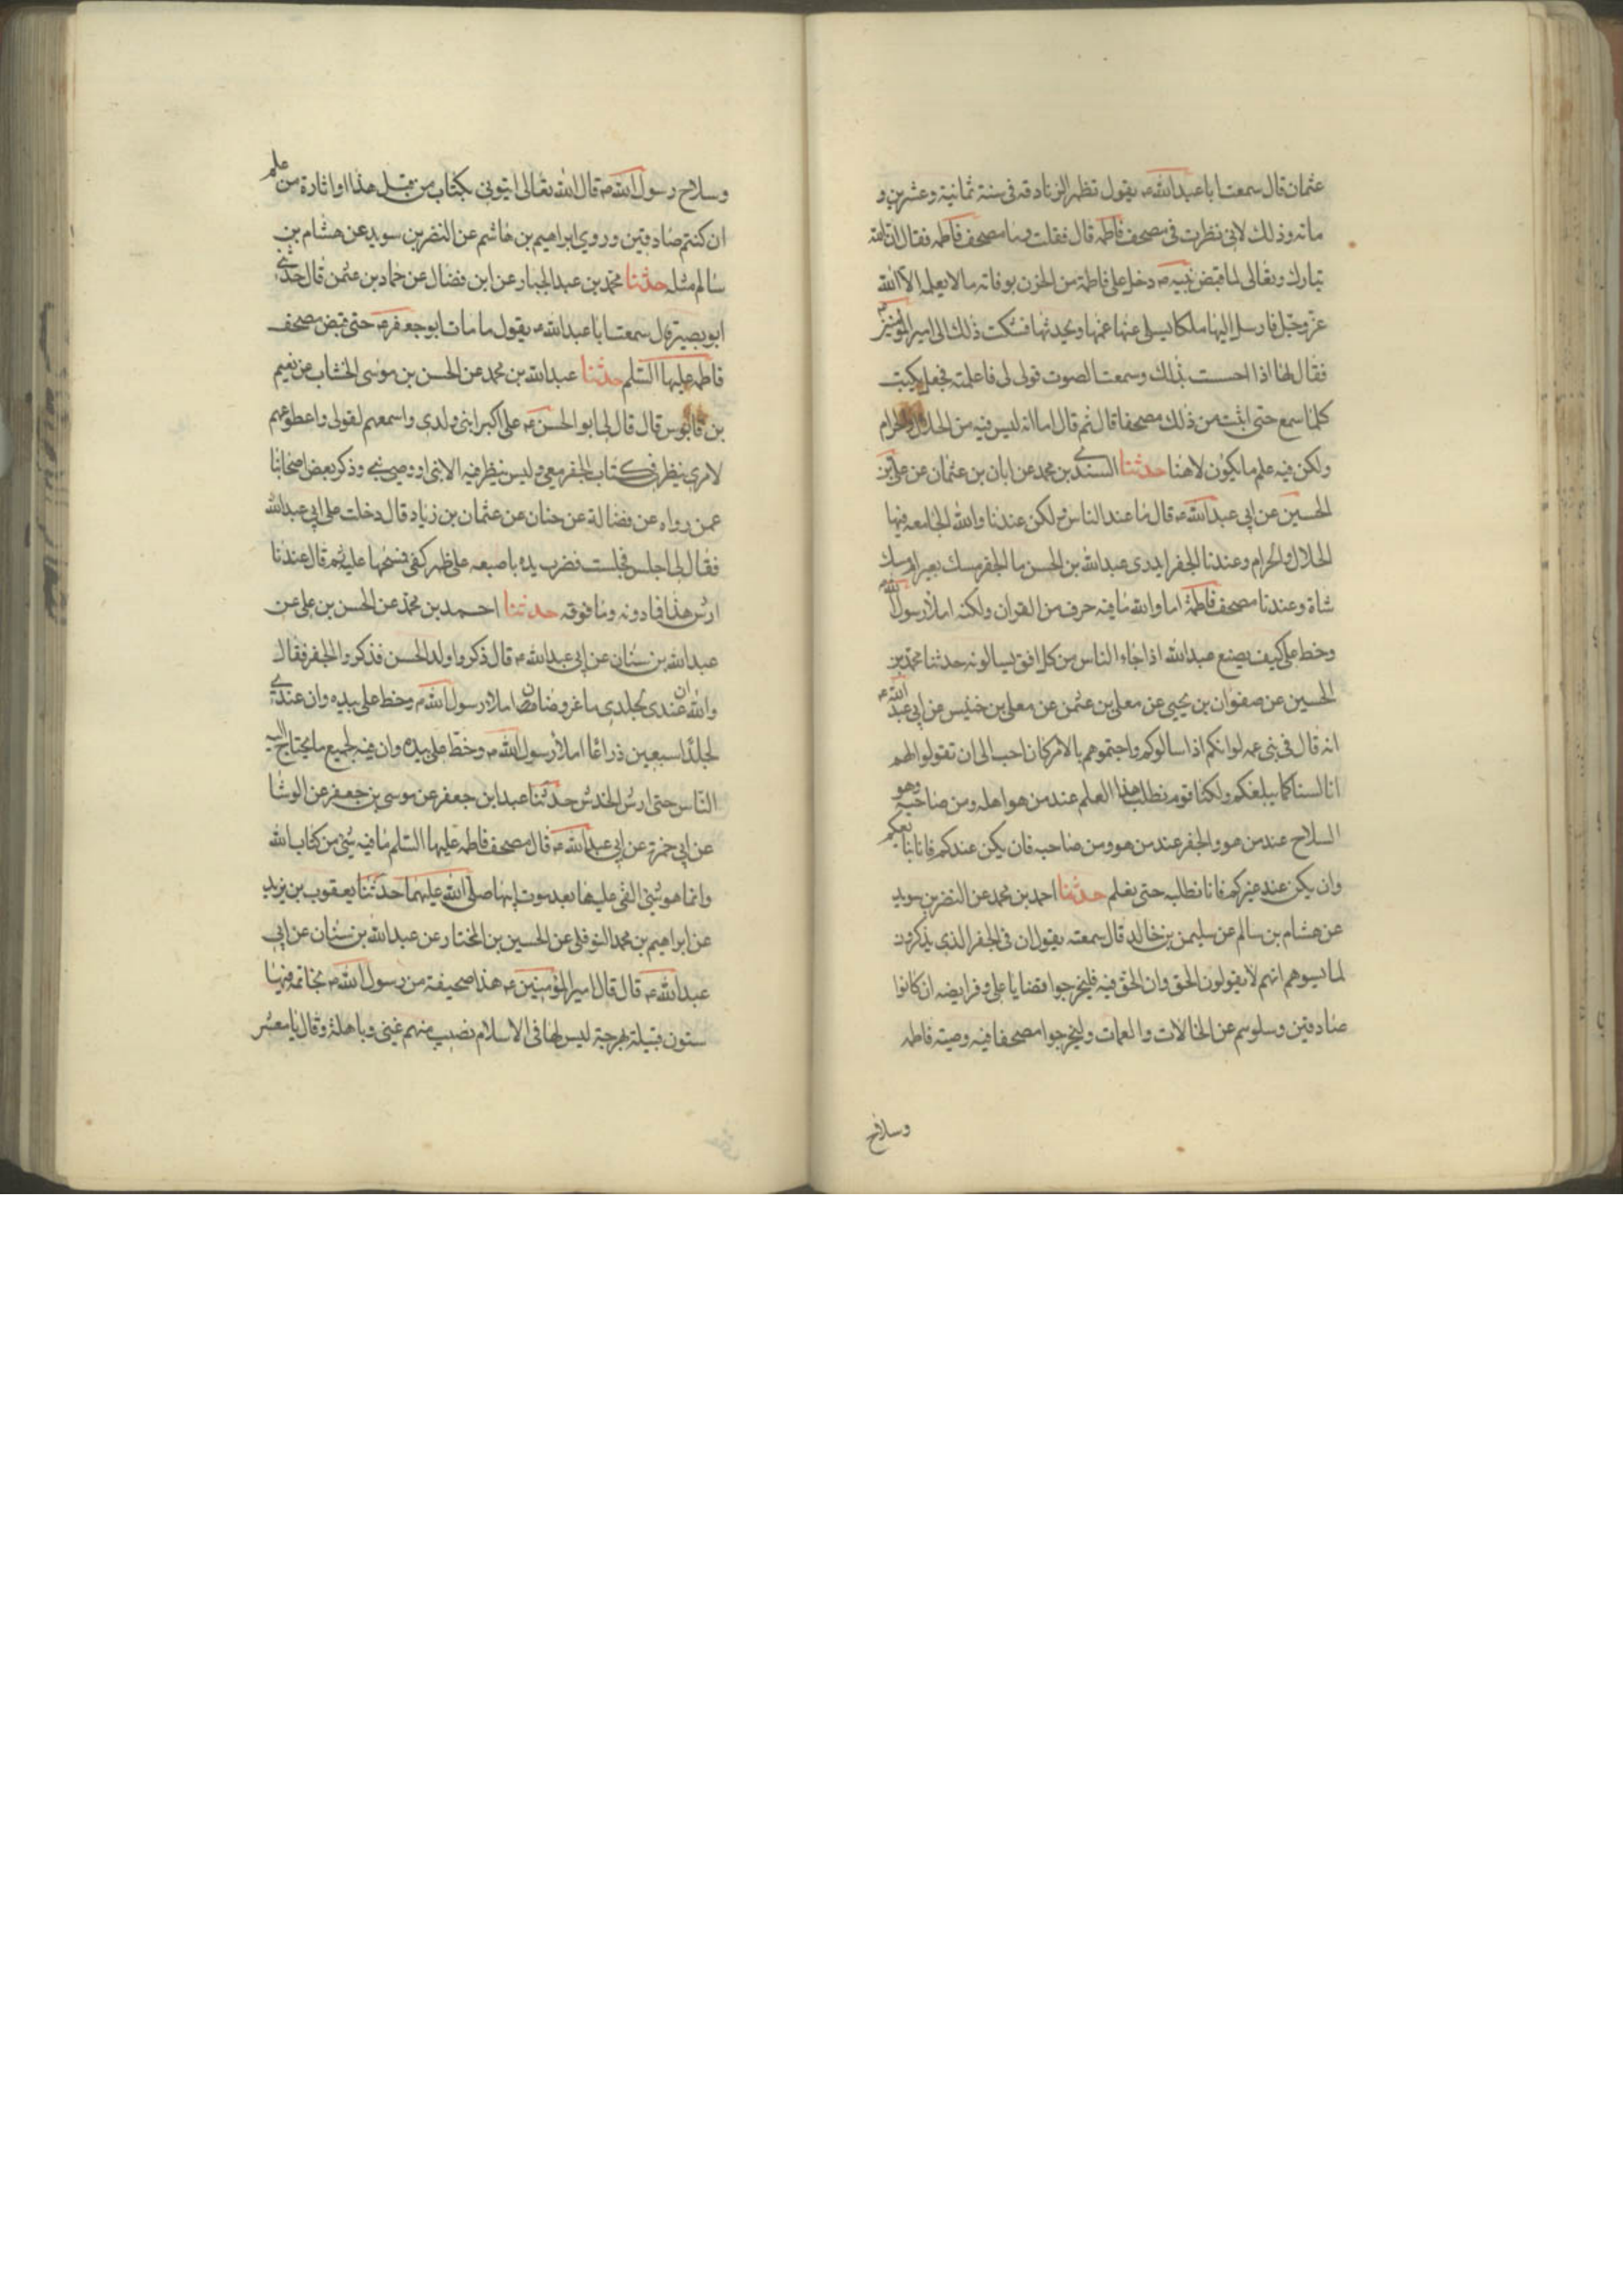 عثمان قال سمعت ابا عبدالله ع يقول تظهر الزنادقه فى سنة ثمانية وعشرين و
مائه وذلك لانى نظرت فى مصحف فاطمه قال فقلت وما مصحف فاطمه فقال ان الله
تبارك وتعالى لما قبض نبيه ص دخل على فاطمة من الحزن بوفاته ما لا يعلمه الا الله
عز وجل فارسل اليها ملكا يسلى عنها غمها ويحدثها فشكت ذلك الى امير المومنين ع
فقال لها اذا احست بذلك وسمعت الصوت قولى لى فاعلمته فجعل يكتب
كلما سمع حتى اثبت من ذلك مصحفا قال ثم قال اما انه ليس فيه من الحلال والحرام
ولكن فيه علم ما يكون لاهنا حدثنا السندى بن محمد عن ابان بن عثمان عن على بن
الحسين عن ابى عبدالله ع قال ما عند الناس ولكن عندنا والله الجامعه فيها
الحلال والحرام وعندنا الجفر ايدرى عبدالله بن الحسن ما الجفر مسك بعير ام مسك
شاة وعندنا مصحف فاطمة اما والله ما فيه حرف من القران ولكنه املأ رسول الله ص
وخط على كيف يصنع عبدالله اذا جاء الناس من كل افق يسالونه حدثنا محمد بن
الحسين عن صفوان بن يحيى عن معلى بن عثمن عن معلى بن خنيس عن ابى عبد الله ع
انه قال فى بنى عمه لو انكم اذا سالوكم واجبتموهم بالامر كان احب الى ان تقولوا لهم
انا لسنا كما يبلغكم ولكنا قوم نطلب هذا العلم عند من هو اهله ومن صاحبه وهو
السلاح عند من هو والجفر عند من هو ومن صاحبه فان يكن عندكم فانا نبايعكم
وان يكن عند غيركم فانا نطلبه حتى يعلم حدثنا احمد بن محمد عن النضر بن سويد
عن هشام بن سالم عن سليمن بن خالد قال سمعته يقول ان فى الجفر الذى يذكرون
لما يسوهم انهم لا يقولون الحق وان الحق فيه فليخرجوا قضايا على وفرايضه ان كانوا
صادقين وسلوهم عن الخالات والعمات وليخرجوا مصحفا فيه وصيته فاطمه
وسلاح
وسلاح رسول الله ص قال الله تعالى ايتونى بكتاب من قبل هذا او اثارة من علم
ان كنتم صادقين وروي ابراهيم بن هاشم عن النضر بن سويد عن هشام بن
سالم مثله حدثنا محمد بن عبد الجبار عن ابن فضال عن حماد بن عثمن قال حدثنى
ابو بصير قال سمعت ابا عبدالله ع يقول ما مات ابو جعفر ع حتى قبض مصحف
فاطمه عليها السلم حدثنا عبدالله بن محمد عن الحسن بن موسى الخشاب عن نعيم
بن قابوس قال قال لى ابو الحسن ع على اكبر ابنى ولدى واسمعهم لقولى واطوعهم
لامرى ينظر فى كتاب الجفر معى وليس ينظر فيه الا نبى او وصى نبى وذكر بعض اصحابنا
عمن رواه عن فضالة عن حنان عن عثمان بن زياد قال دخلت على ابى عبدالله
فقال لى اجلس فجلست فضرب يده باصبعه على ظهر كفى فمسحها عليه ثم قال عندنا
ارش هذا فما دونه وما فوقه حدثنا احمد بن محمد عن الحسن بن على عن
عبدالله بن سنان عن ابى عبدالله ع قال ذكروا ولد الحسن فذكروا الجفر فقال
والله ان عندى لجلدى ماعز وضان املاء رسول الله ص وخط على بيده وان عندى
لجلدا سبعين ذراعا املأ رسول الله ص وخط على بيده وان فيه لجميع ما يحتاج اليه
الناس حتى ارش الخدش حدثنا عبد ابن جعفر عن موسى بن جعفر عن الوشا
عن ابى حمزة عن ابى عبدالله ع قال مصحف فاطمه عليها السلم ما فيه شئ من كتاب الله
وانما هو شئ القى عليها بعد موت ابيها صلى الله عليهما حدثنا يعقوب بن يزيد
عن ابراهيم بن محمد النوفلى عن الحسين بن المختار عن عبدالله بن سنان عن ابى
عبدالله ع قال قال امير المؤمنين ع هذا صحيفة من رسول الله ص بخاتمه فيها
ستون قبيلة بهرجة ليس لها فى الاسلام نصيب منهم غنى وباهلة وقال يا معشر